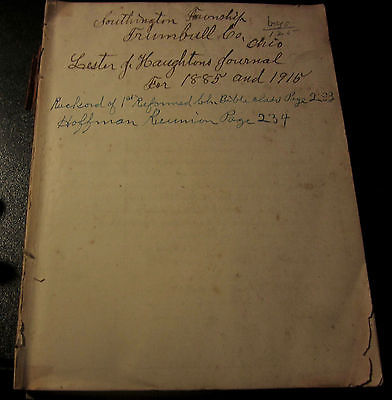 Southington Township
Trumbull Co,
Ohio
Lester J Haughtons Journal
For 1885 and 1915
Reckord of 1st Reformed Chr Bible class Page 233
Hoffman Reunion Page 234